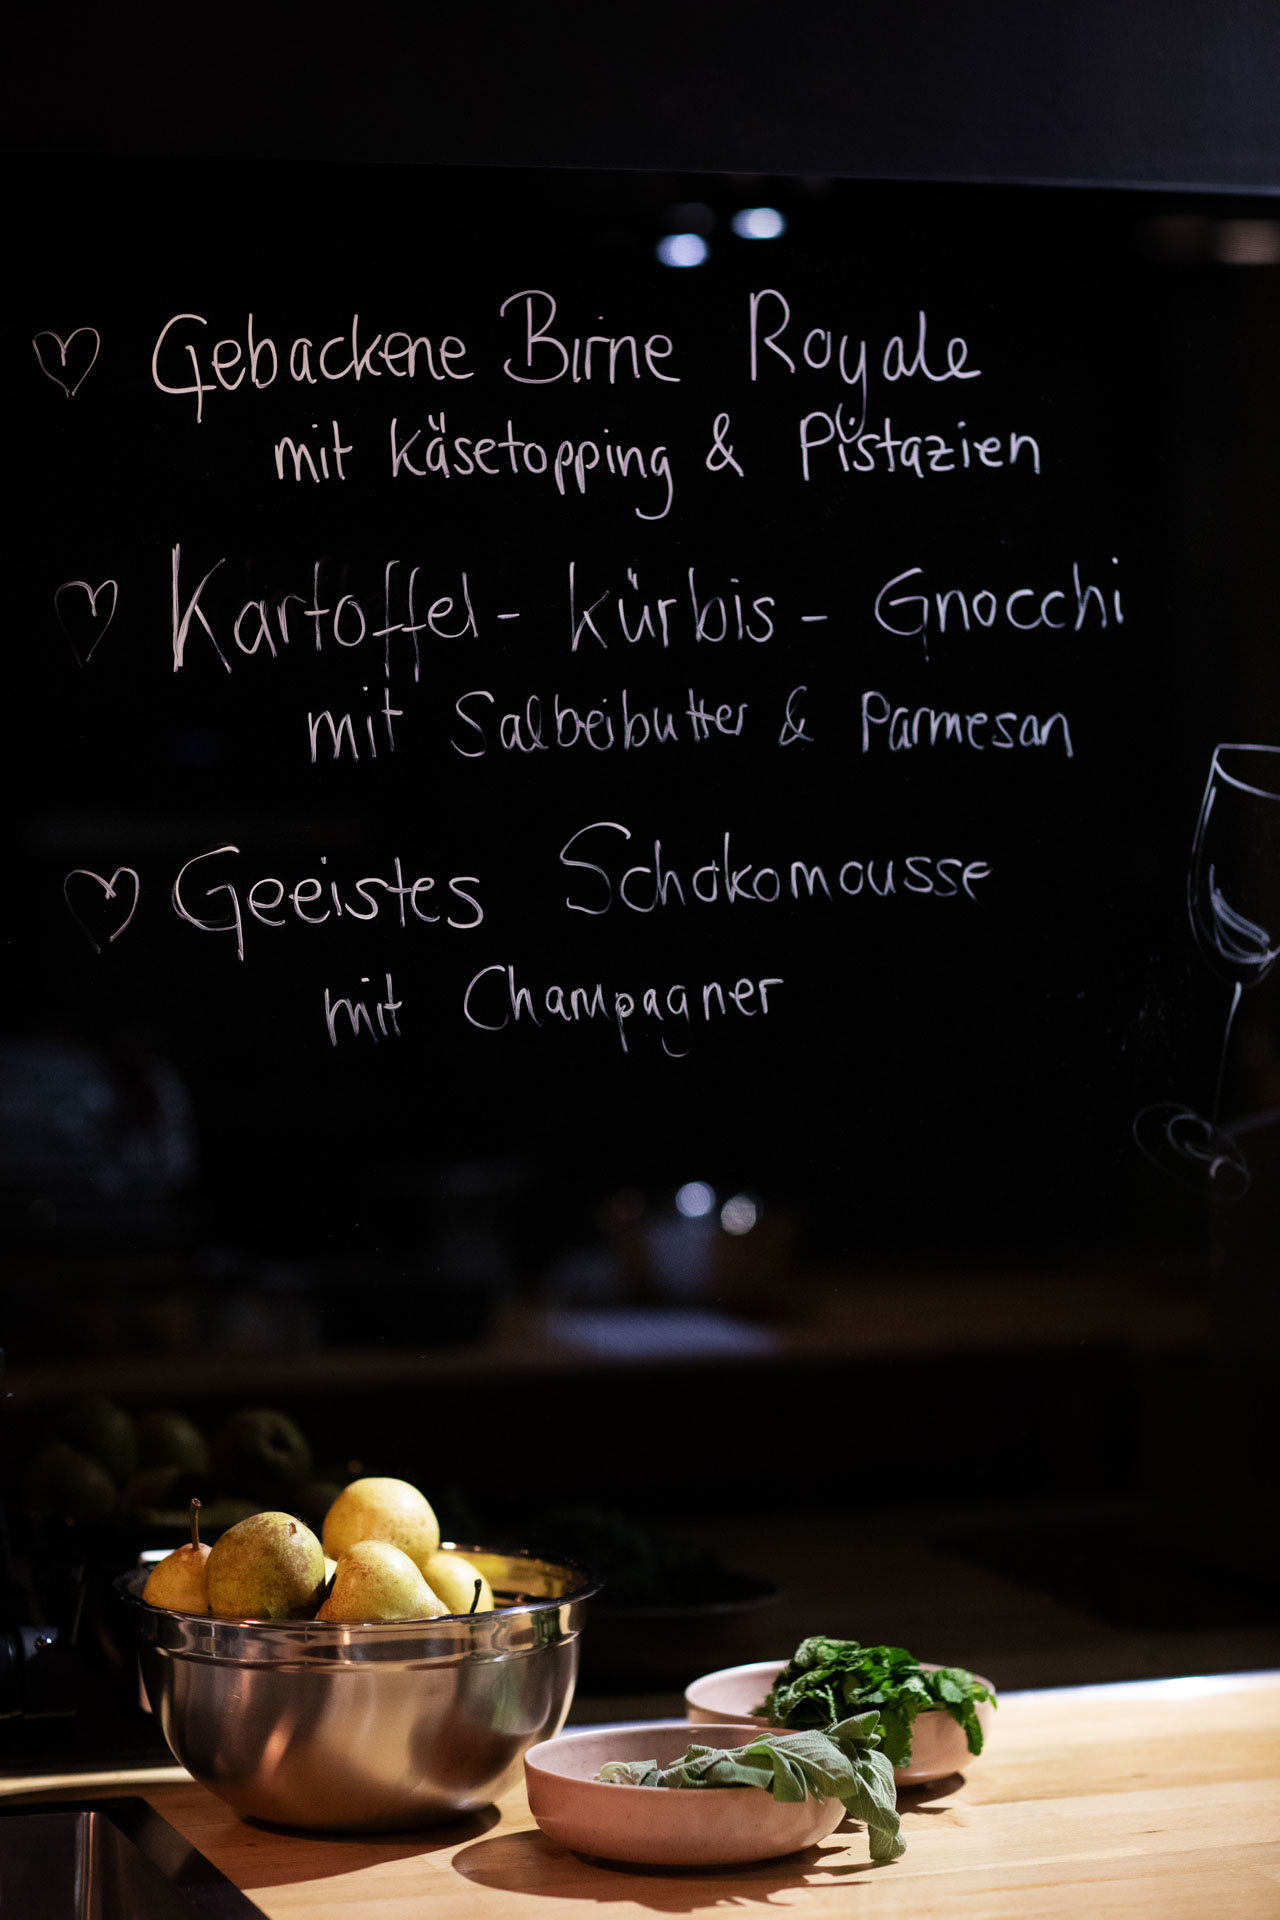 Gebackene Birne Royale
mit Käsetopping & Pistazien
Kartoffel - Kürbis - Gnocchi
mit Salbeibutter & Parmesan
Geeistes Schokomousse
mit Champagner